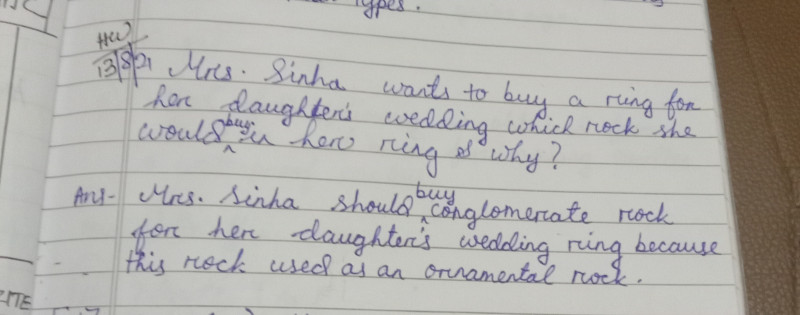 types.
HW
13/8/21 Mrs. Sinha wants to buy a ring for
her daughter's wedding which rock she
would buy in her ring & why?
Ans- Mrs. Sinha should buy conglomerate rock
for her daughter's wedding ring because
this rock used as an ornamental rock.